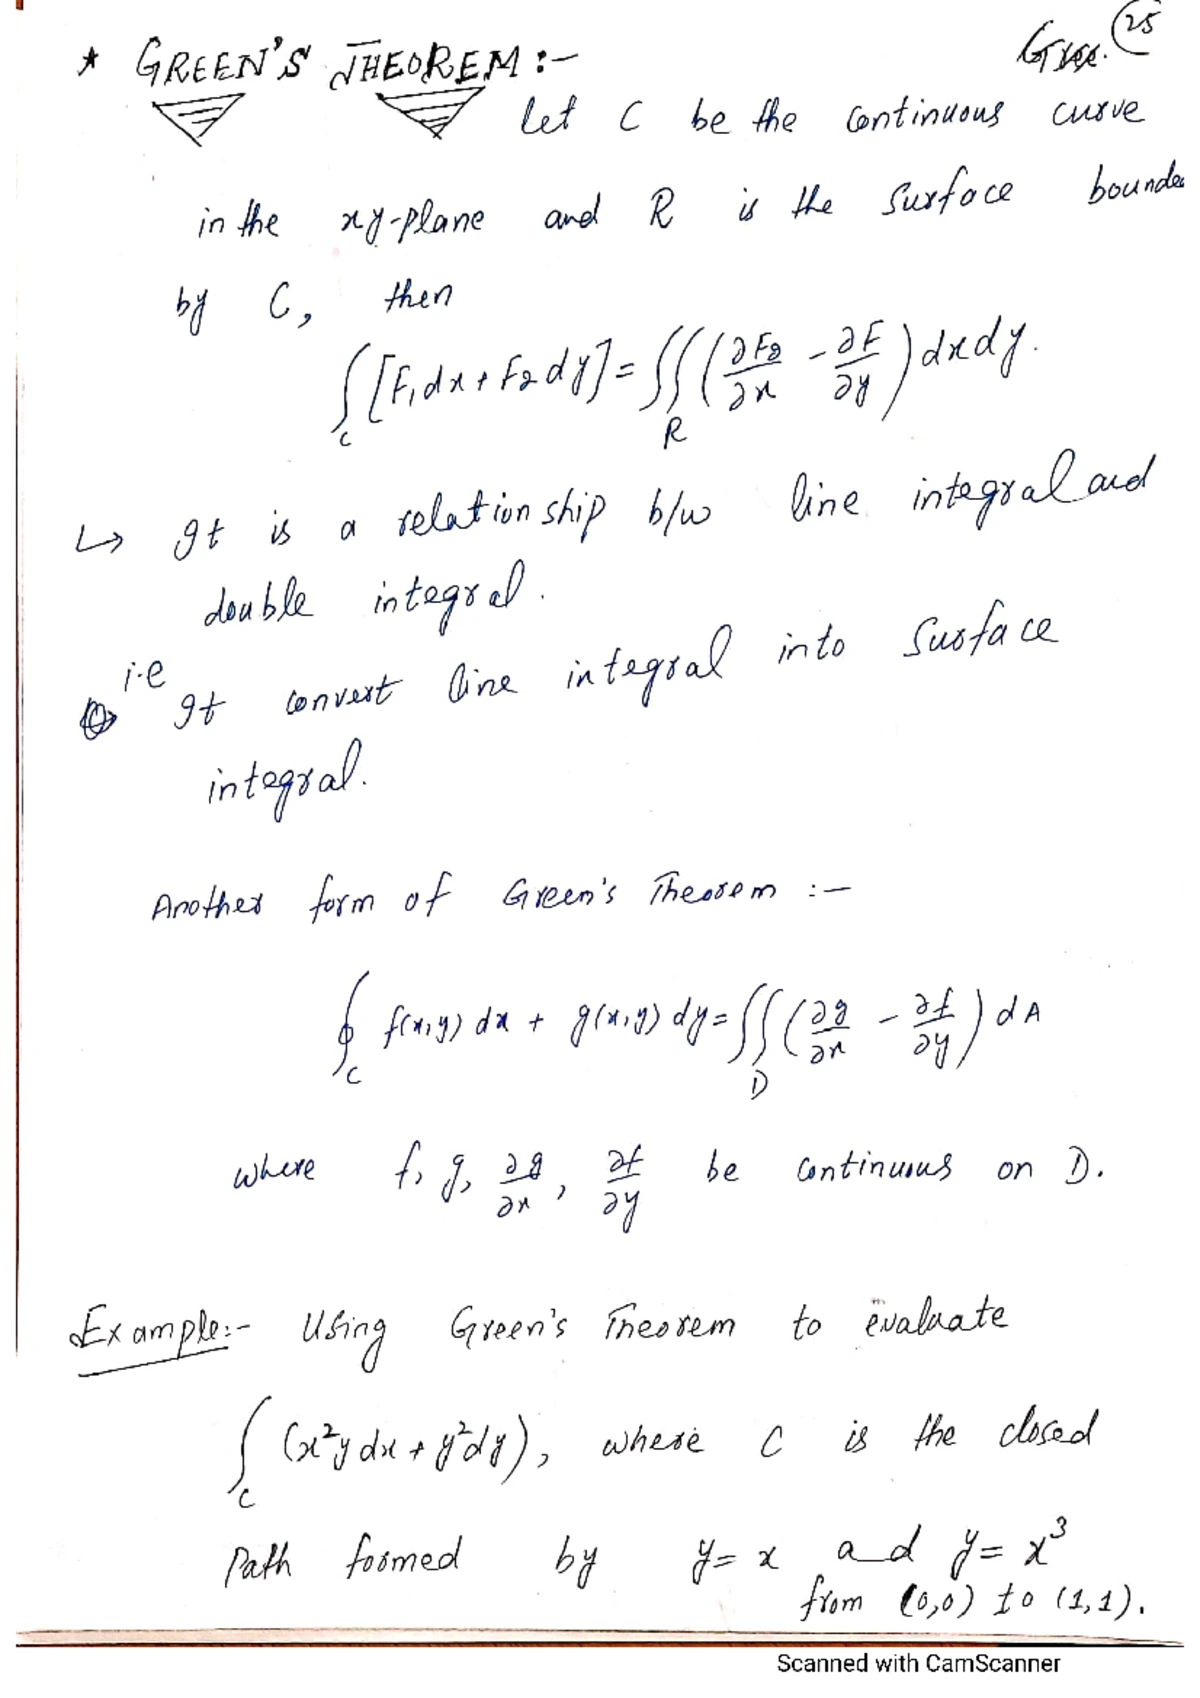 25
* GREEN'S THEOREM :-
Let C be the continuous curve
in the xy-plane and R is the surface bounde
by C, then
∫_C [F₁dx + F₂dy] = ∬_R (∂F₂/∂x - ∂F/∂y) dxdy.
↳ It is a relationship b/w line integral and
double integral.
i.e It convert line integral into surface
integral.
Another form of Green's Theorem :-
∮_C f(x,y) dx + g(x,y) dy = ∬_D (∂g/∂x - ∂f/∂y) dA
where f, g, ∂g/∂x, ∂f/∂y be continuous on D.
Example:- Using Green's Theorem to evaluate
∫_C (x²y dx + y²dy), where C is the closed
Path formed by y = x and y = x³
from (0,0) to (1,1).
Scanned with CamScanner